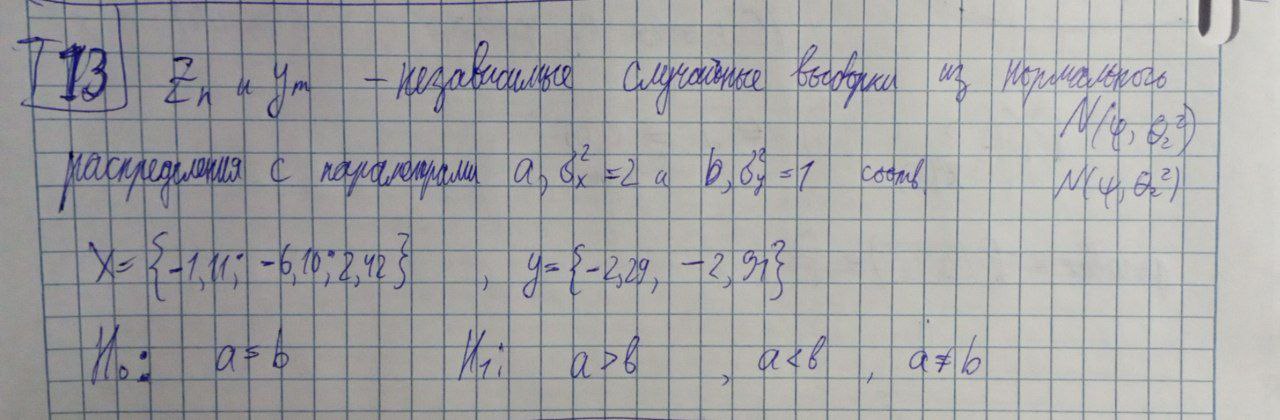 T 13 Zn и Ym - независимые случайные выборки из нормального
N(ψ, θ₂²)
распределения с параметрами a, σx²=2 и b, σy²=1 соотв N(ψ, θ₂²)
X={-1,11; -6,10; 2,42} , y={-2,29, -2,91}
H₀: a=b H₁: a>b , a<b , a≠b